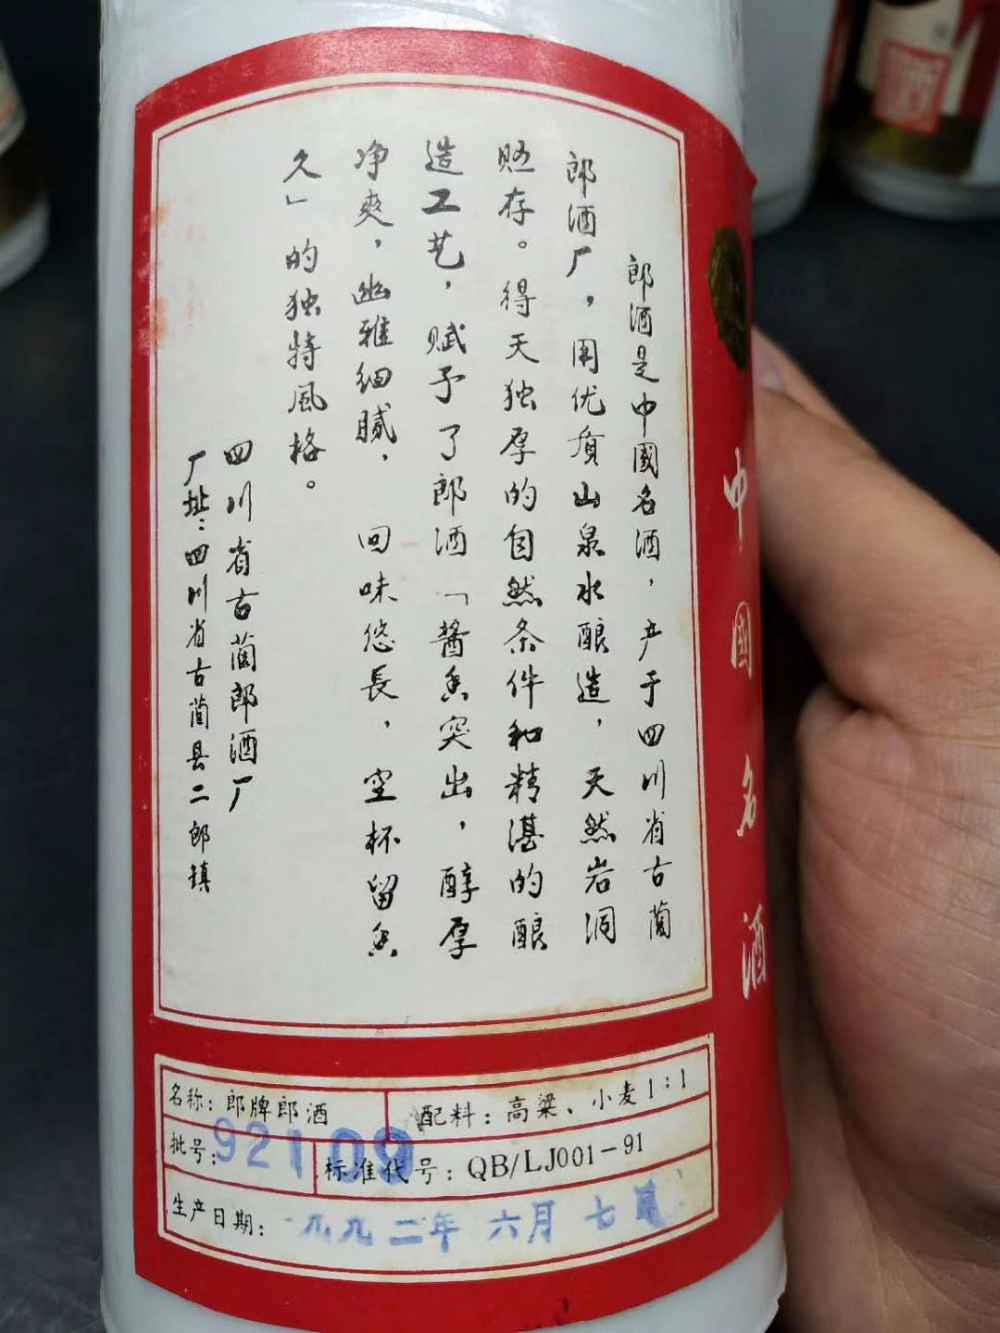 郎酒是中國名酒，产于四川省古蔺
郎酒厂，用优质山泉水酿造，天然岩洞
贮存。得天独厚的自然条件和精湛的酿
造工艺，赋予了郎酒「酱香突出，醇厚
净爽，幽雅细腻，回味悠長，空杯留香
久」的独特風格。
四川省古蔺郎酒厂
厂址：四川省古蔺县二郎镇
中國名酒
名称：郎牌郎酒
配料：高粱、小麦1:1
批号：92109
标准代号：QB/LJ001-91
生产日期：九九二年 六月 七